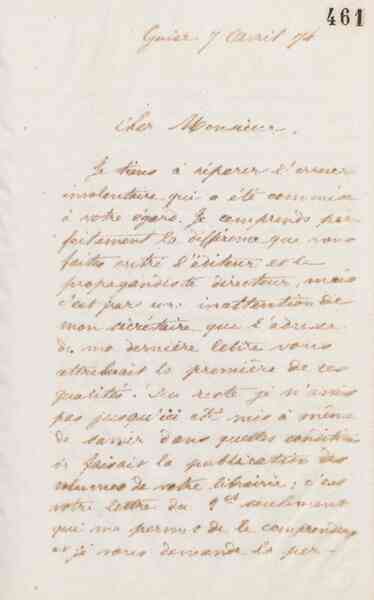 461
Guise 7 Avril 74
Cher Monsieur,
Je tiens à réparer l'erreur
involontaire qui a été commise
à votre égard. Je comprends par
faitement la différence que vous
faites entre l'éditeur et le
propagandiste directeur, mais
c'est par une inattention de
mon secrétaire que l'adresse
de ma dernière lettre vous
attribuait la première de ces
qualités. Du reste je n'avais
pas jusqu'ici été mis à même
de savoir dans quelles conditions
se faisait la publication des
volumes de votre librairie; c'est
votre lettre du seulement
qui m'a permis de le comprendre
et je vous demande la per-